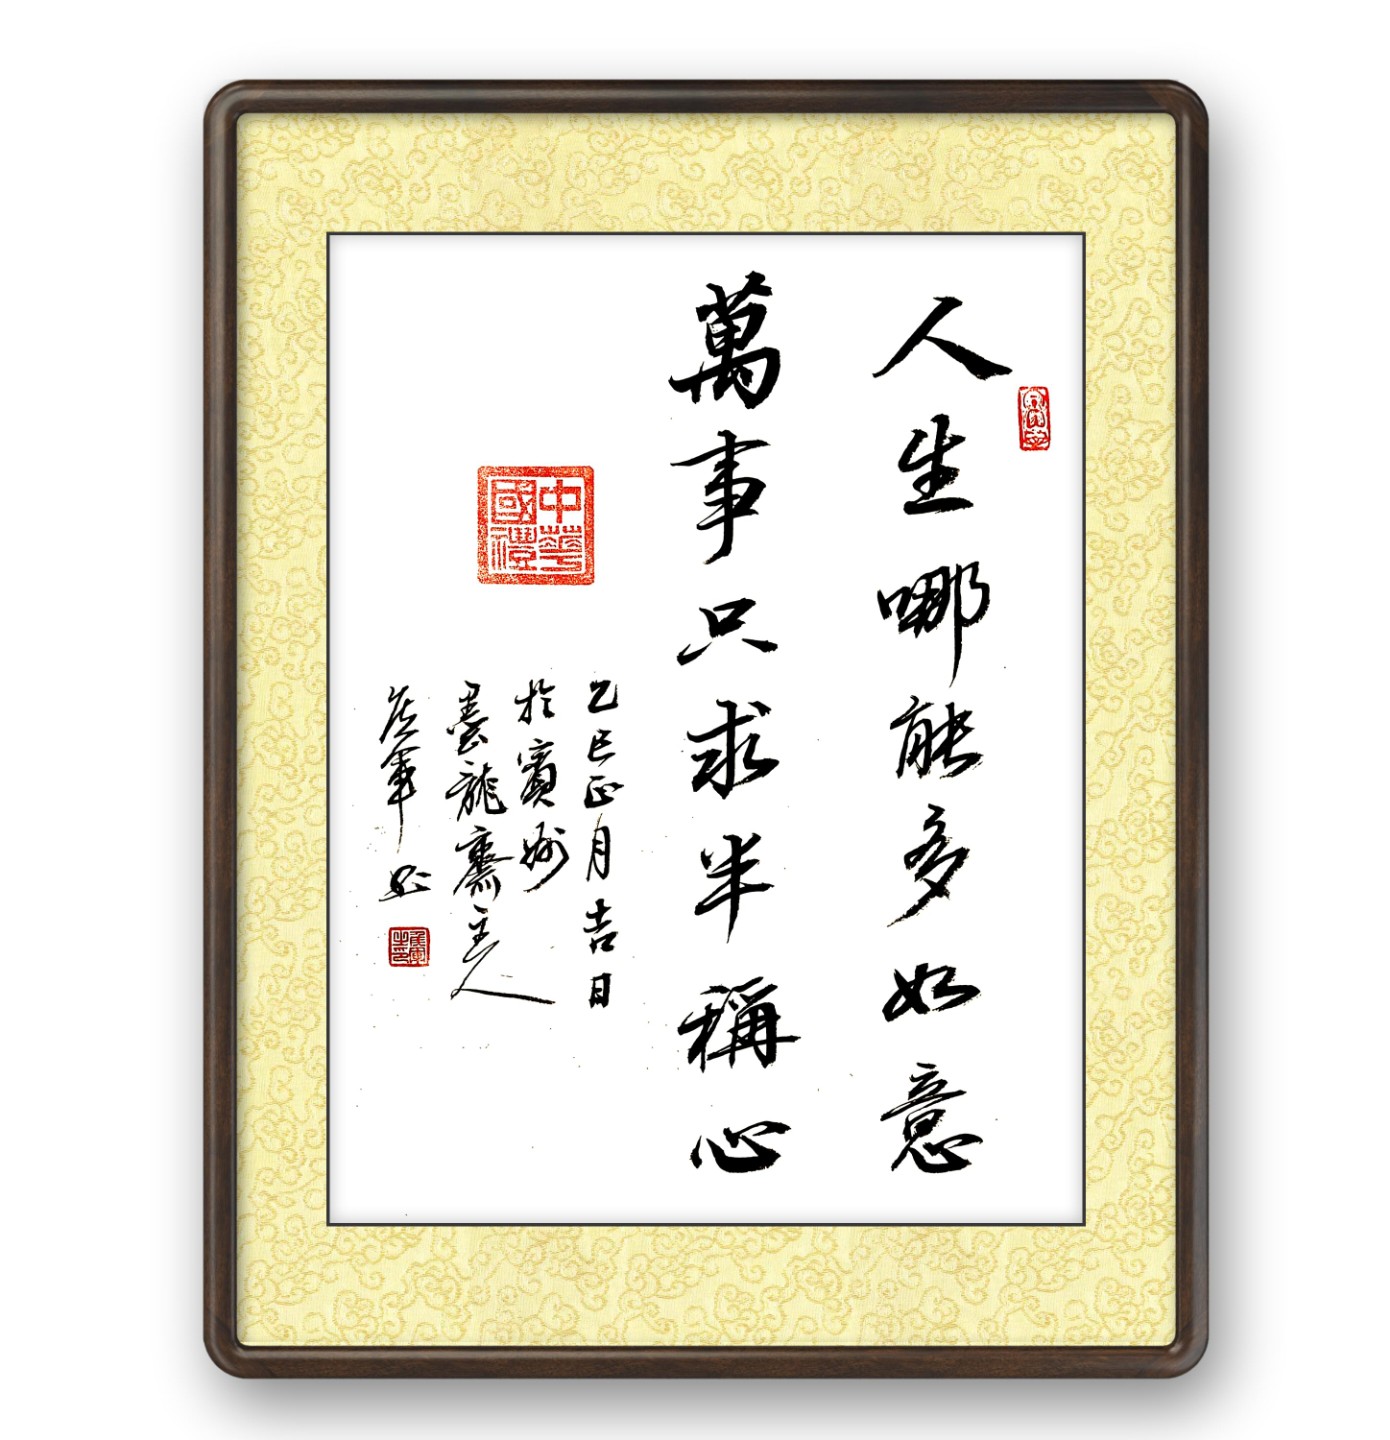 人生哪能多如意
萬事只求半稱心
乙巳正月吉日
於賓州
墨龍齋主人
中華國禮